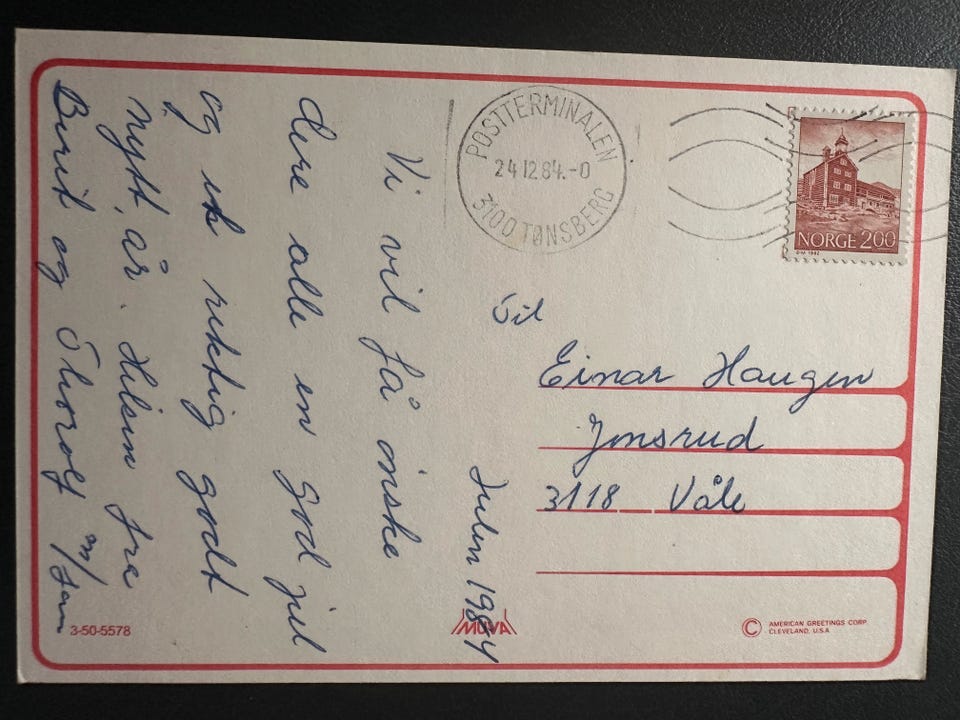 Julen 1984
Vi vil få ønske
dere alle en god jul
og et riktig godt
nytt år. Hilsen fra
Berit og Thorolf m/fam
POSTTERMINALEN
24.12.84.-0
3100 TØNSBERG
NORGE 200
Til
Einar Haugen
Jonsrud
3118 Våle
3-50-5578
MOVA
© AMERICAN GREETINGS CORP.
CLEVELAND, U.S.A